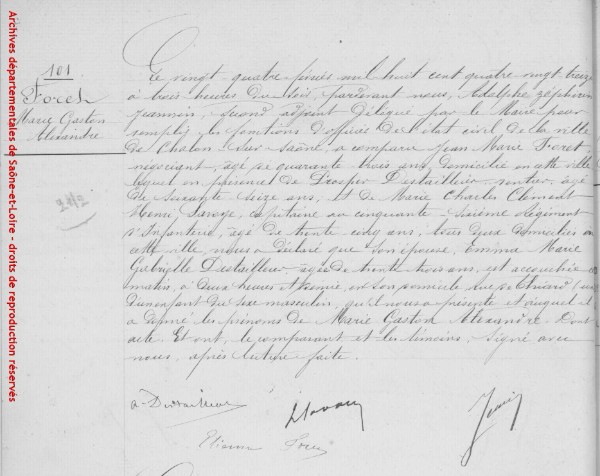 Archives départementales de Saône-et-Loire - droits de reproduction réservés
101
Marie Gaston
Alexandre
Le vingt-quatre mil huit cent quatre vingt treize
à trois heures du soir, pardevant nous, Adolphe Zéphirin
Jeannin, second adjoint délégué par le Maire pour
remplir les fonctions d'officier de l'état civil de la ville
de Chalon-sur-Saône, a comparu Jean Marie
négociant, âgé de quarante trois ans, domicilié en cette ville
lequel en présence de Prosper Destailleur rentier, âgé
de soixante-seize ans, et de Marie Charles Clément
Henri capitaine au cinquante-sixième Régiment
d'Infanterie, âgé de trente cinq ans, tous deux domiciliés en
cette ville, nous a déclaré que son épouse, Emma Marie
Gabrielle Destailleur, âgée de trente trois ans, est accouchée ce
matin, à deux heures et demie, en son domicile rue
d'un enfant du sexe masculin, qu'il nous a présenté et auquel il
a donné les prénoms de Marie Gaston Alexandre. Dont
acte. Et ont, le comparant et les témoins, signé avec
nous, après lecture faite.
Destailleur